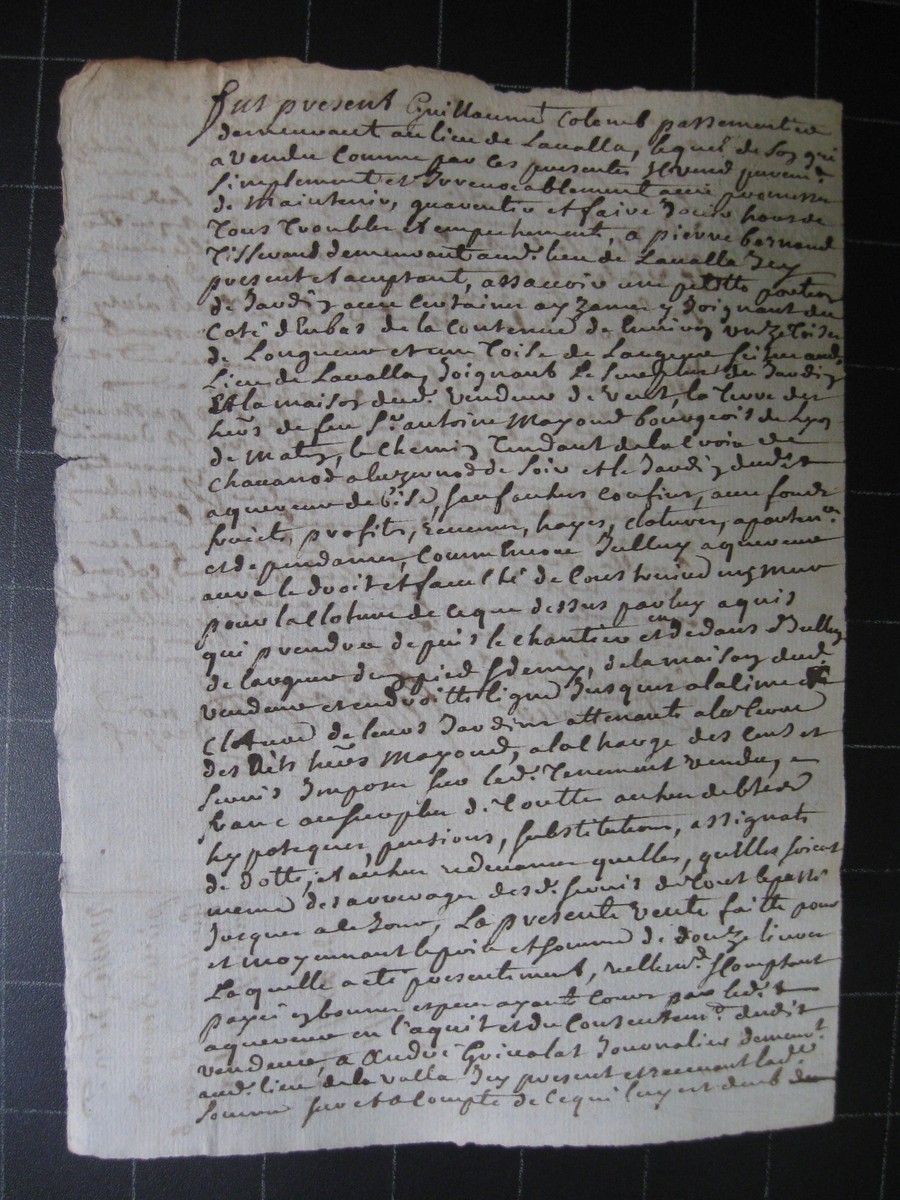 fut present Guillaume Colomb passementier
demeurant au lieu de Lavalla, lequel de soy gré
a vendu comme par ces presentes Il vend purem.t
simplement et Irrevocablement avec promesse
de maintenir, guarentir et faire Jouir hors de
tous troubles et empechement, a pierre bernard
Tisserand demeurant aud. lieu de Lavalla Icy
present et acceptant, assavoir une petitte portion
de Jardin avec certaines ayzances y Joignant du
coté d'Enbas de la contenue de environ onze toises
de Longueur et une toise de Largeur scitué aud.
Lieu de Lavalla, Joignant Le surplus du Jardin
Et la maison dud. vendeur de vent, la terre des
heirs de feu Sr. antoine Mayoud bourgeois de Lyon
de matin, le chemin tendant de la croix de
chavanod a luzernod de soir et le Jardin dud.it
aquereur de bise, sauf autres confins, avec fonds
fruits, profits, revenus, hayes, clotures, aparten.ces
et dependances, comme Encore Icelluy aquereur
aura le droit et faculté de construire ung mur
pour la cloture de ce que dessus par luy aquis
qui prendra depuis le chantier en dedans d'Icelluy
de largeur d'un pied & demy, de la maison dud.
vendeur et en droitte ligne Jusques a la lime et
cloture de leurs Jardins attenants a la terre
des dits heirs Mayoud, a la charge des cens et
servis Imposés sur led. tenement vendu, e
franc au surplus de toutte autres debtes
hypoteques, pensions, substitutions, assignats
de dotte, et autres redevances quelles, quelles soient
meme des arrerages desd. servis de tout le passé
Jusques a ce Jour, La presente vente faitte pour
et moyennant le prix et somme de douze livres
Laquelle a eté presentement, reellem.t & comptant
payée en bonnes especes ayant cours par ledit
aquereur en l'aquit et du consentem.t dudit
vendeur, a André Journalier demeur.t
aud. lieu de la valla Icy present et recevant lad.e
somme sur et a compte de ce qui luy est deub de